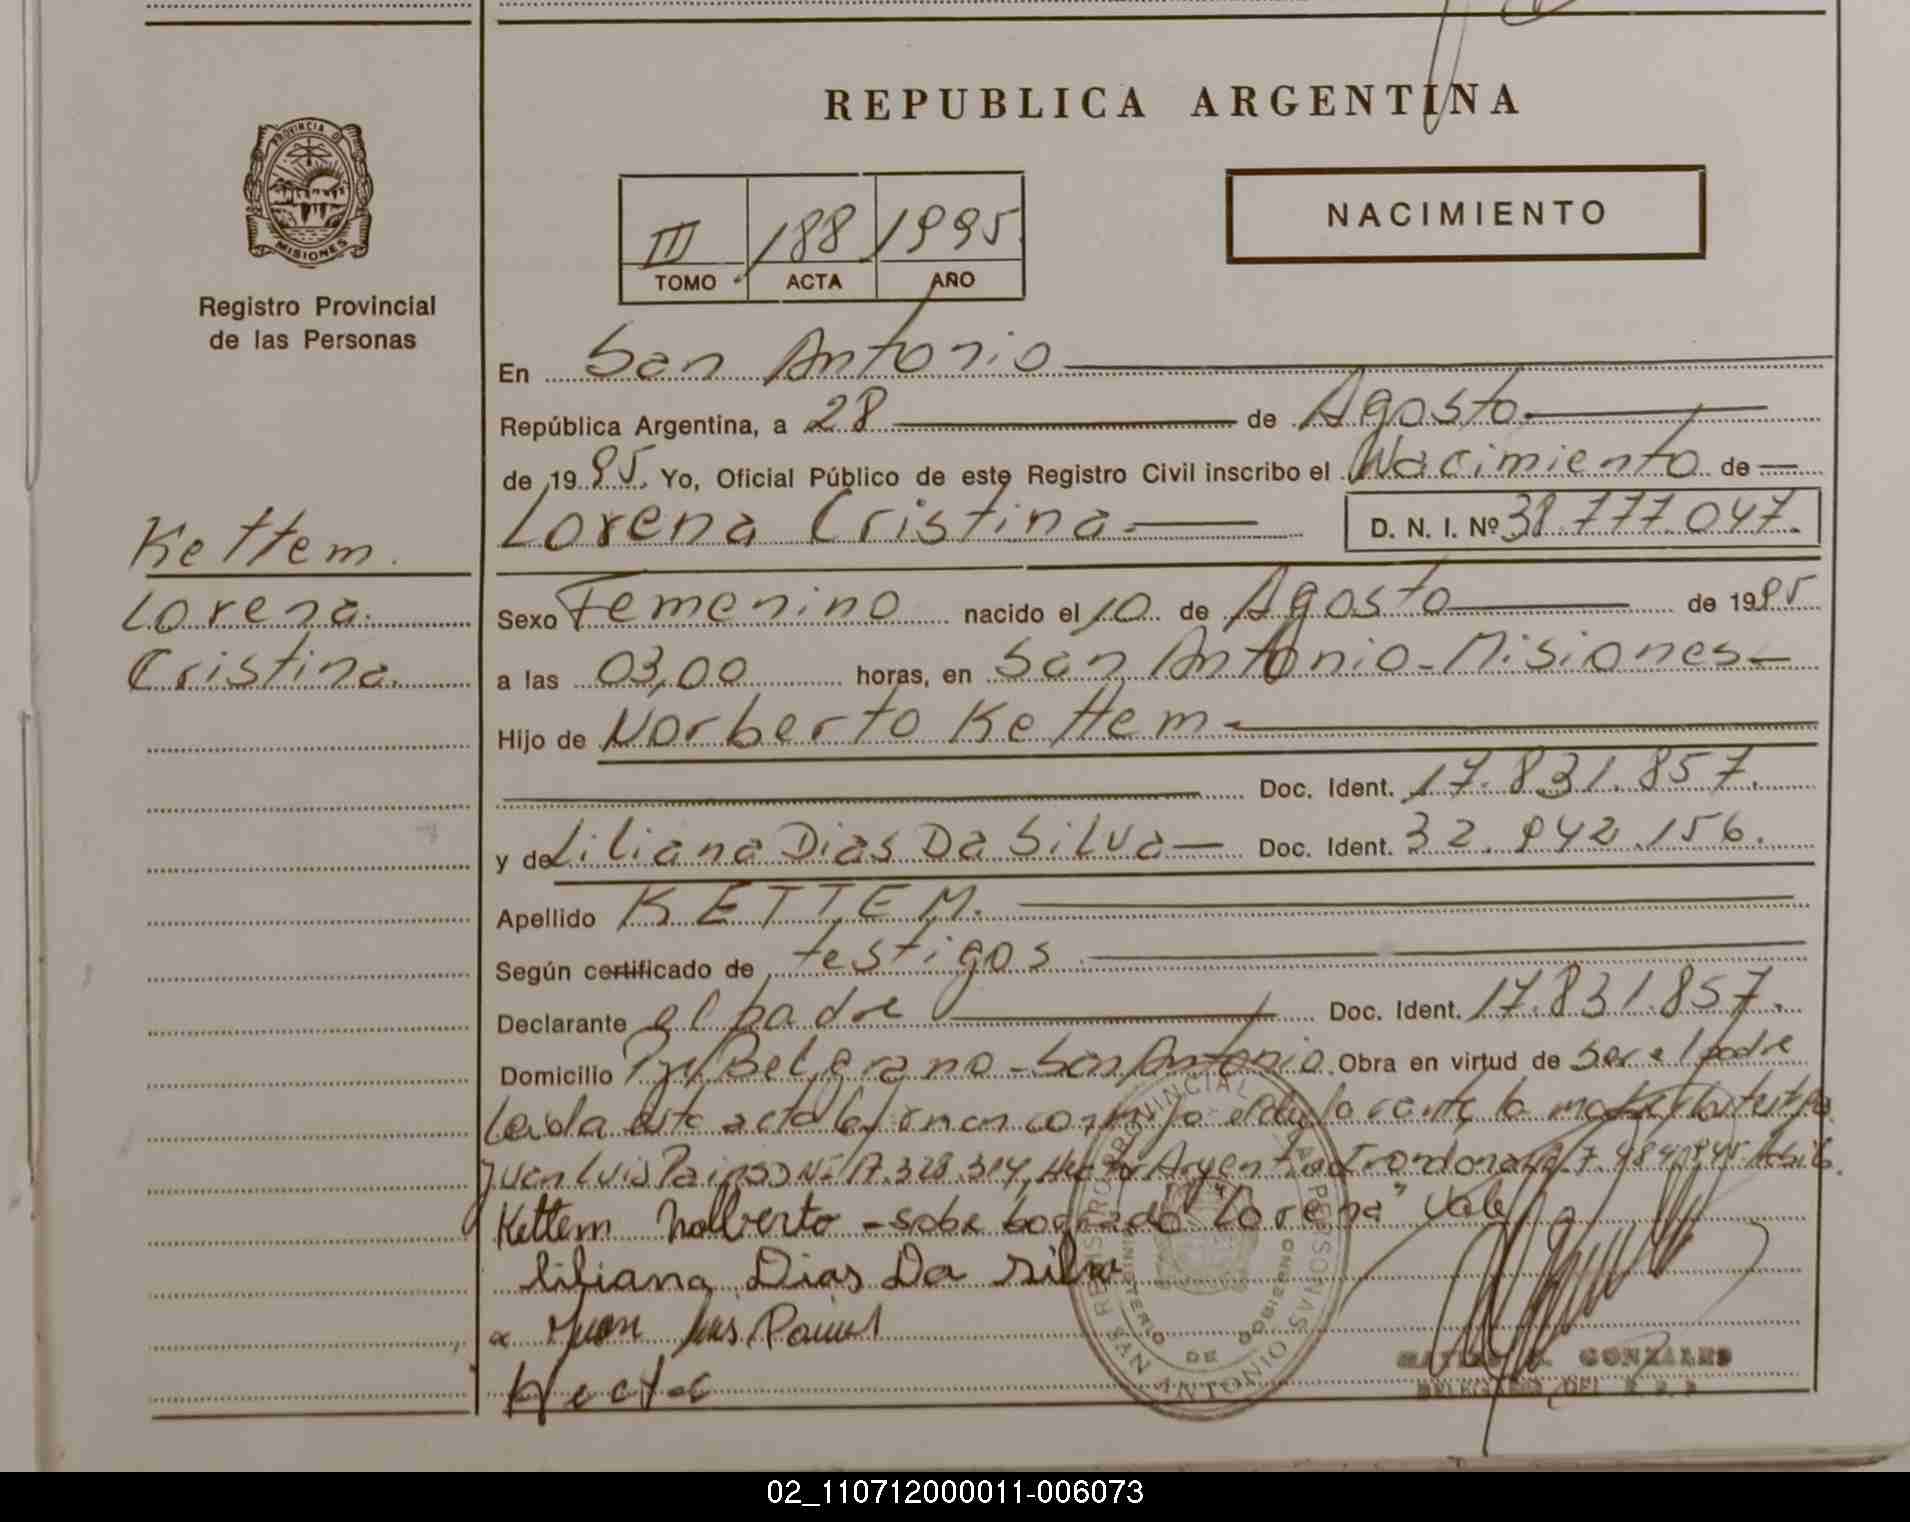 REPUBLICA ARGENTINA
PROVINCIA DE
MISIONES
Registro Provincial
de las Personas
III 188 1995
TOMO ACTA AÑO
NACIMIENTO
En San Antonio
República Argentina, a 28 de Agosto
de 1995. Yo, Oficial Público de este Registro Civil inscribo el Nacimiento de
Lorena Cristina D. N. I. Nº 38.777.047.
Kettem.
Lorena.
Cristina.
Sexo Femenino nacido el 10 de Agosto de 1995
a las 03,00 horas, en San Antonio-Misiones
Hijo de Norberto Kettem
Doc. Ident. 17.831.857.
y de Liliana Dias Da Silva Doc. Ident. 32.942.156.
Apellido KETTEM.
Según certificado de testigos
Declarante el padre Doc. Ident. 17.831.857.
Domicilio Belgrano - San Antonio. Obra en virtud de ser el padre
Leida esta acta la firman conmigo el la madre
Juan Luis
Kettem Nolberto - sobre borrado "Lorena" Vale
liliana Dias Da silva
Juan Luis
Hector
REGISTRO PROVINCIAL DE LAS PERSONAS
MINISTERIO DE GOBIERNO
SAN ANTONIO
GONZALES
DELEGADO DEL
02_110712000011-006073